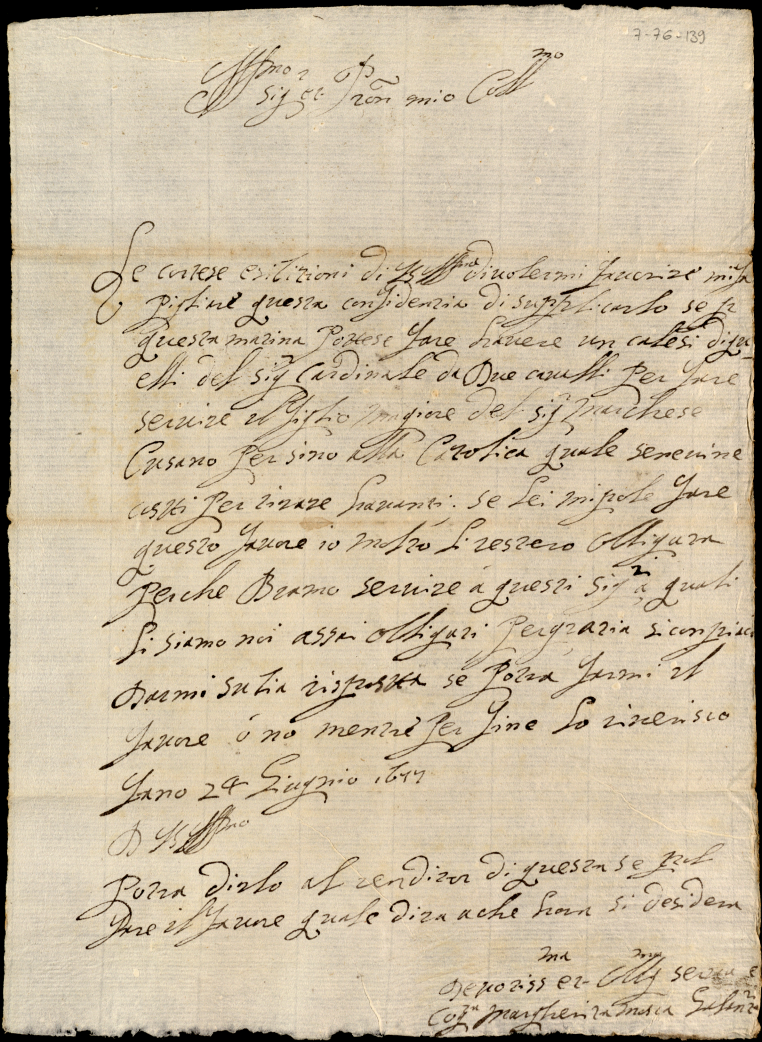 7-76-139
Ill.mo
Sig.r et Pron mio Coll.mo
Le cortese esibitioni di V S Ill.ma di volermi favorire mi fa
pigliare questa confidenza di supplicarlo se p
questa matina potese fare havere un calesi di qu
elli del Sig Cardinale da due cavalli per fare
servire il figlio magiore del Sig Marchese
Cusano per sino alla Catolica quale se ne viene
per tirare havanti. se lei mi pole fare
questo favore io molto li restero obligata
perche bramo servire á questi Sig.ri á quali
li siamo noi assai obligati per grazia si conpiaci
darmi risposta se potra farmi il
favore ó no mentre per fine lo riverisco
Fano 24 Giugnio 1677
D V S Ill.ma
potra dirlo al renditor di questa se pol
fare il favore quale dira a che hora si desidera
Devotiss.ma et Obl.ma serva e
Cog.ta Margherita